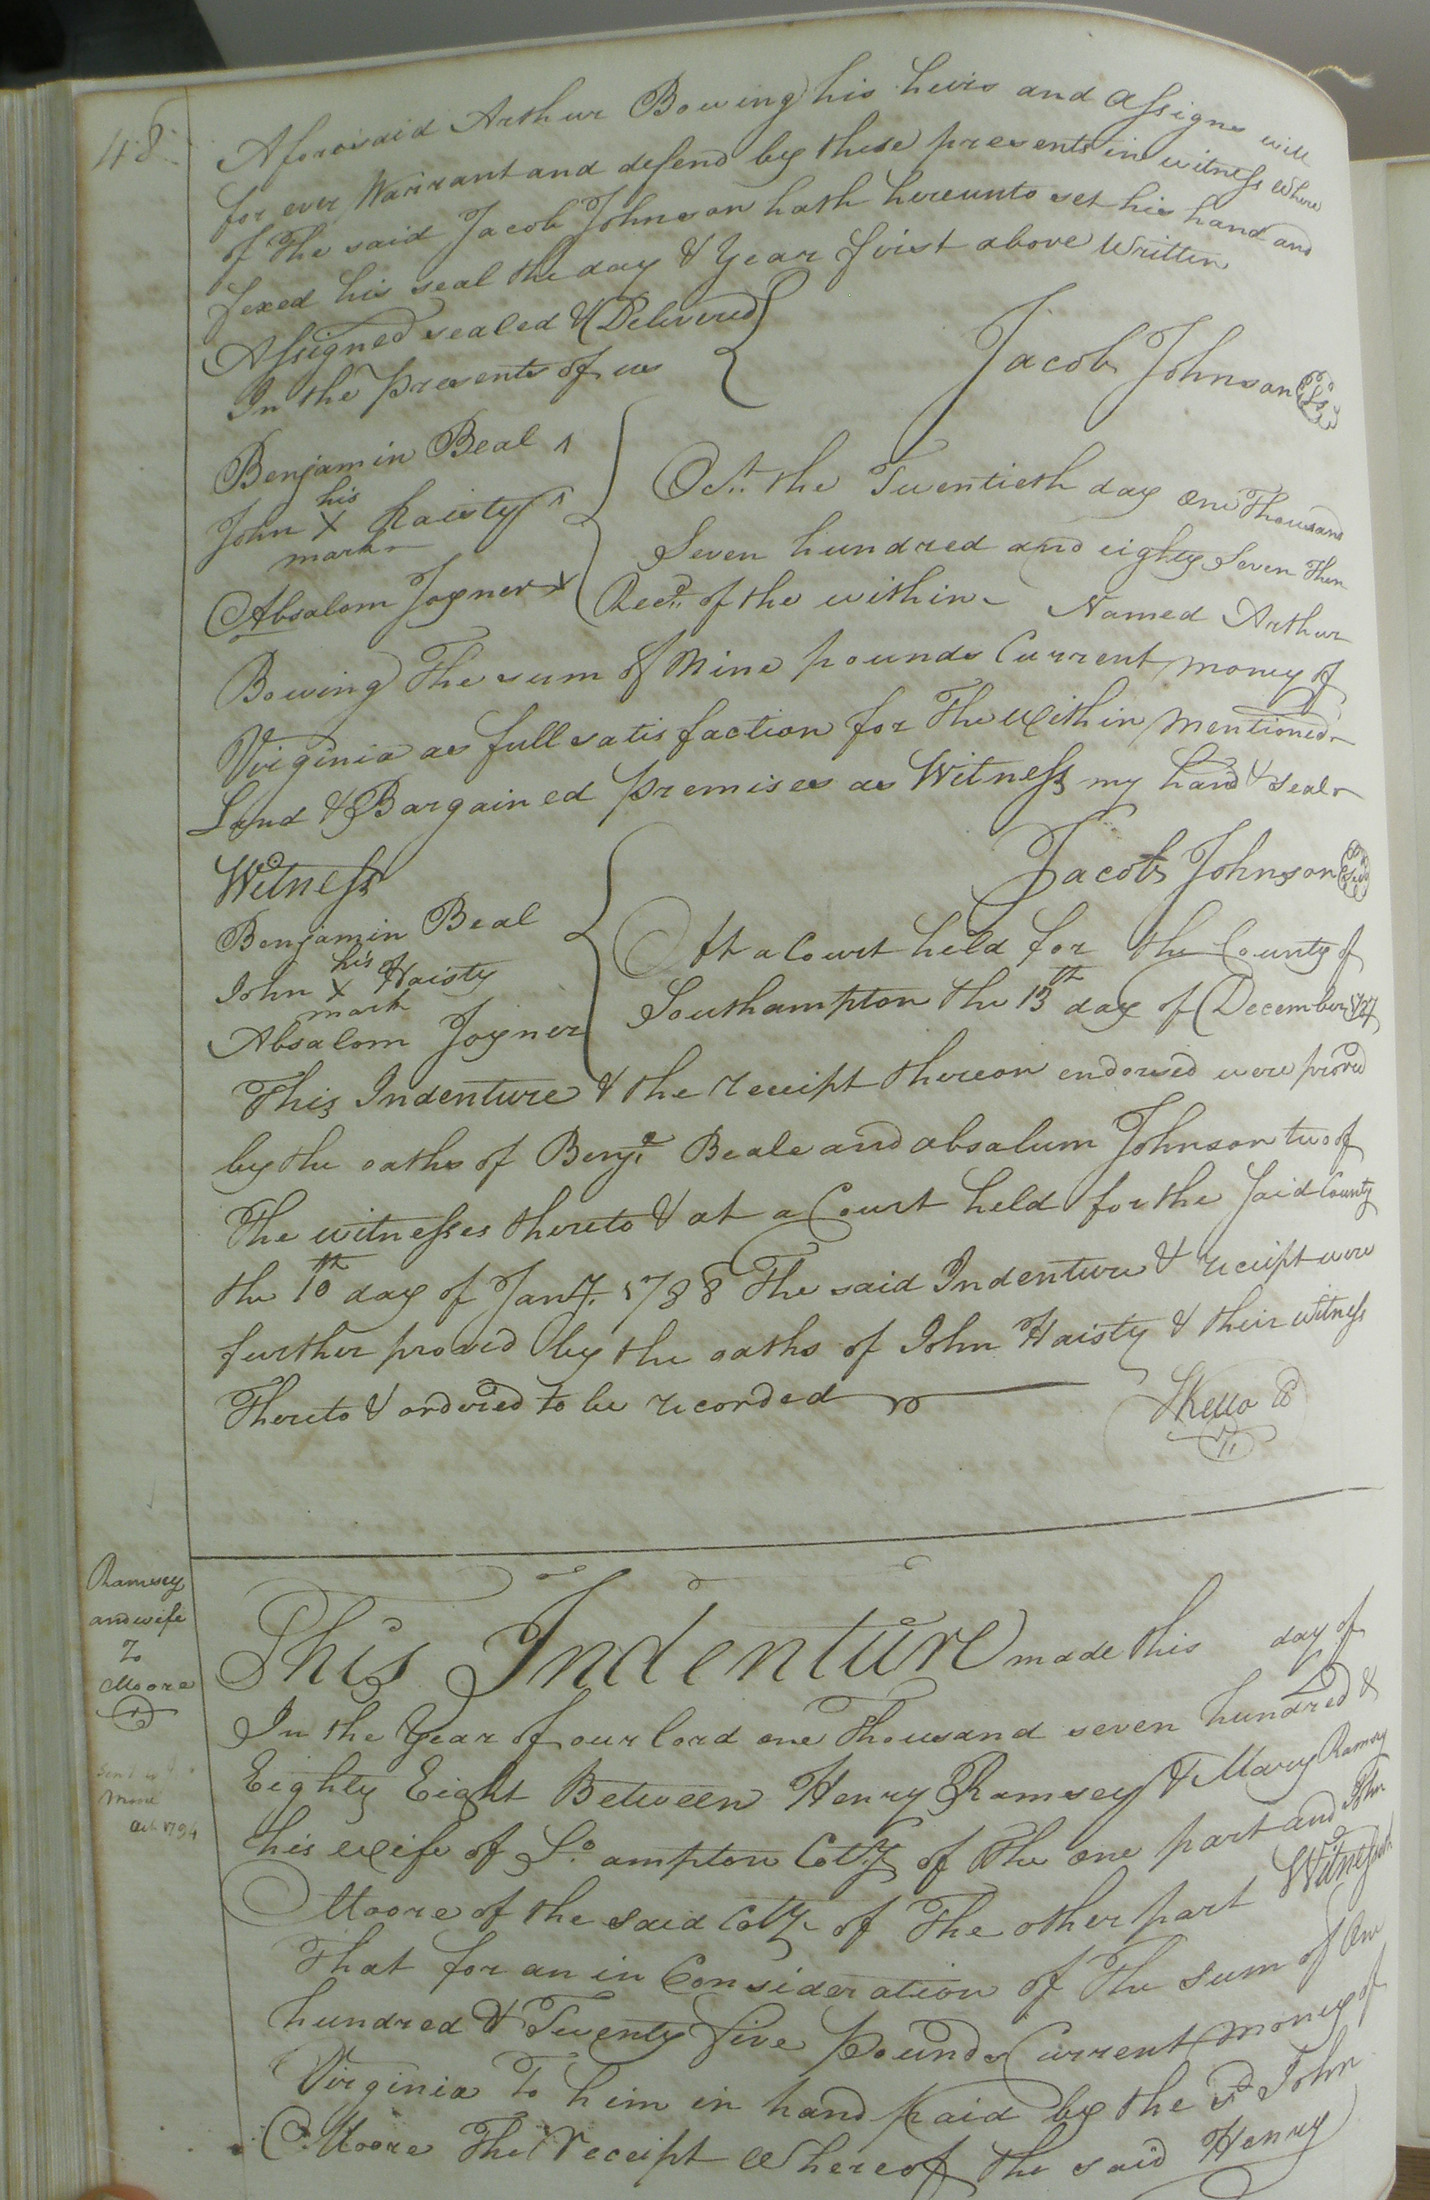 48
Aforesaid Arthur Bowing his heirs and Assigns will
for ever Warrant and defend by these presents in witness where
of The said Jacob Johnson hath hereunto set his hand and
fexed his seal the day & Year first above Written
Assigned sealed & Delivered
In the presents of us
Jacob Johnson
Benjamin Beal
his
John X Haisty
mark
Absalom Joyner
Octr. the Twentieth day One Thousand
Seven hundred and eighty Seven Then
Recd. of the within Named Arthur
Bowing The sum of Nine pounds Current money of
Virginia as full satisfaction for The Within Mentioned
Land & Bargained premises as Witness my hand & seal
Jacob Johnson
Witness
Benjamin Beal
his
John X Haisty
mark
Absalom Joyner
At a Court held for the County of
Southampton the 13th day of December 1787
This Indenture & the receipt thereon endorsed were proved
by the oaths of Benja. Beale and absalum Johnson two of
The witnesses thereto & at a Court held for the said County
the 10th day of Jany. 1788 The said Indenture & receipt were
further proved by the oaths of John Haisty & their witness
Thereto & ordered to be recorded
Ramsey
and wife
To
Moore
This Indenture made this day of
In the Year of our lord one Thousand seven hundred &
Eighty Eight Between Henry Ramsey & Mary Ramsey
his wife of So. ampton Coty. of The one part and John
Moore of the said Coty. of The other part Witnesseth
That for an in Consideration of The sum of One
hundred & Twenty five pounds Current money of
Virginia To him in hand paid by the sd. John
Moore The receipt Whereof the said Henry